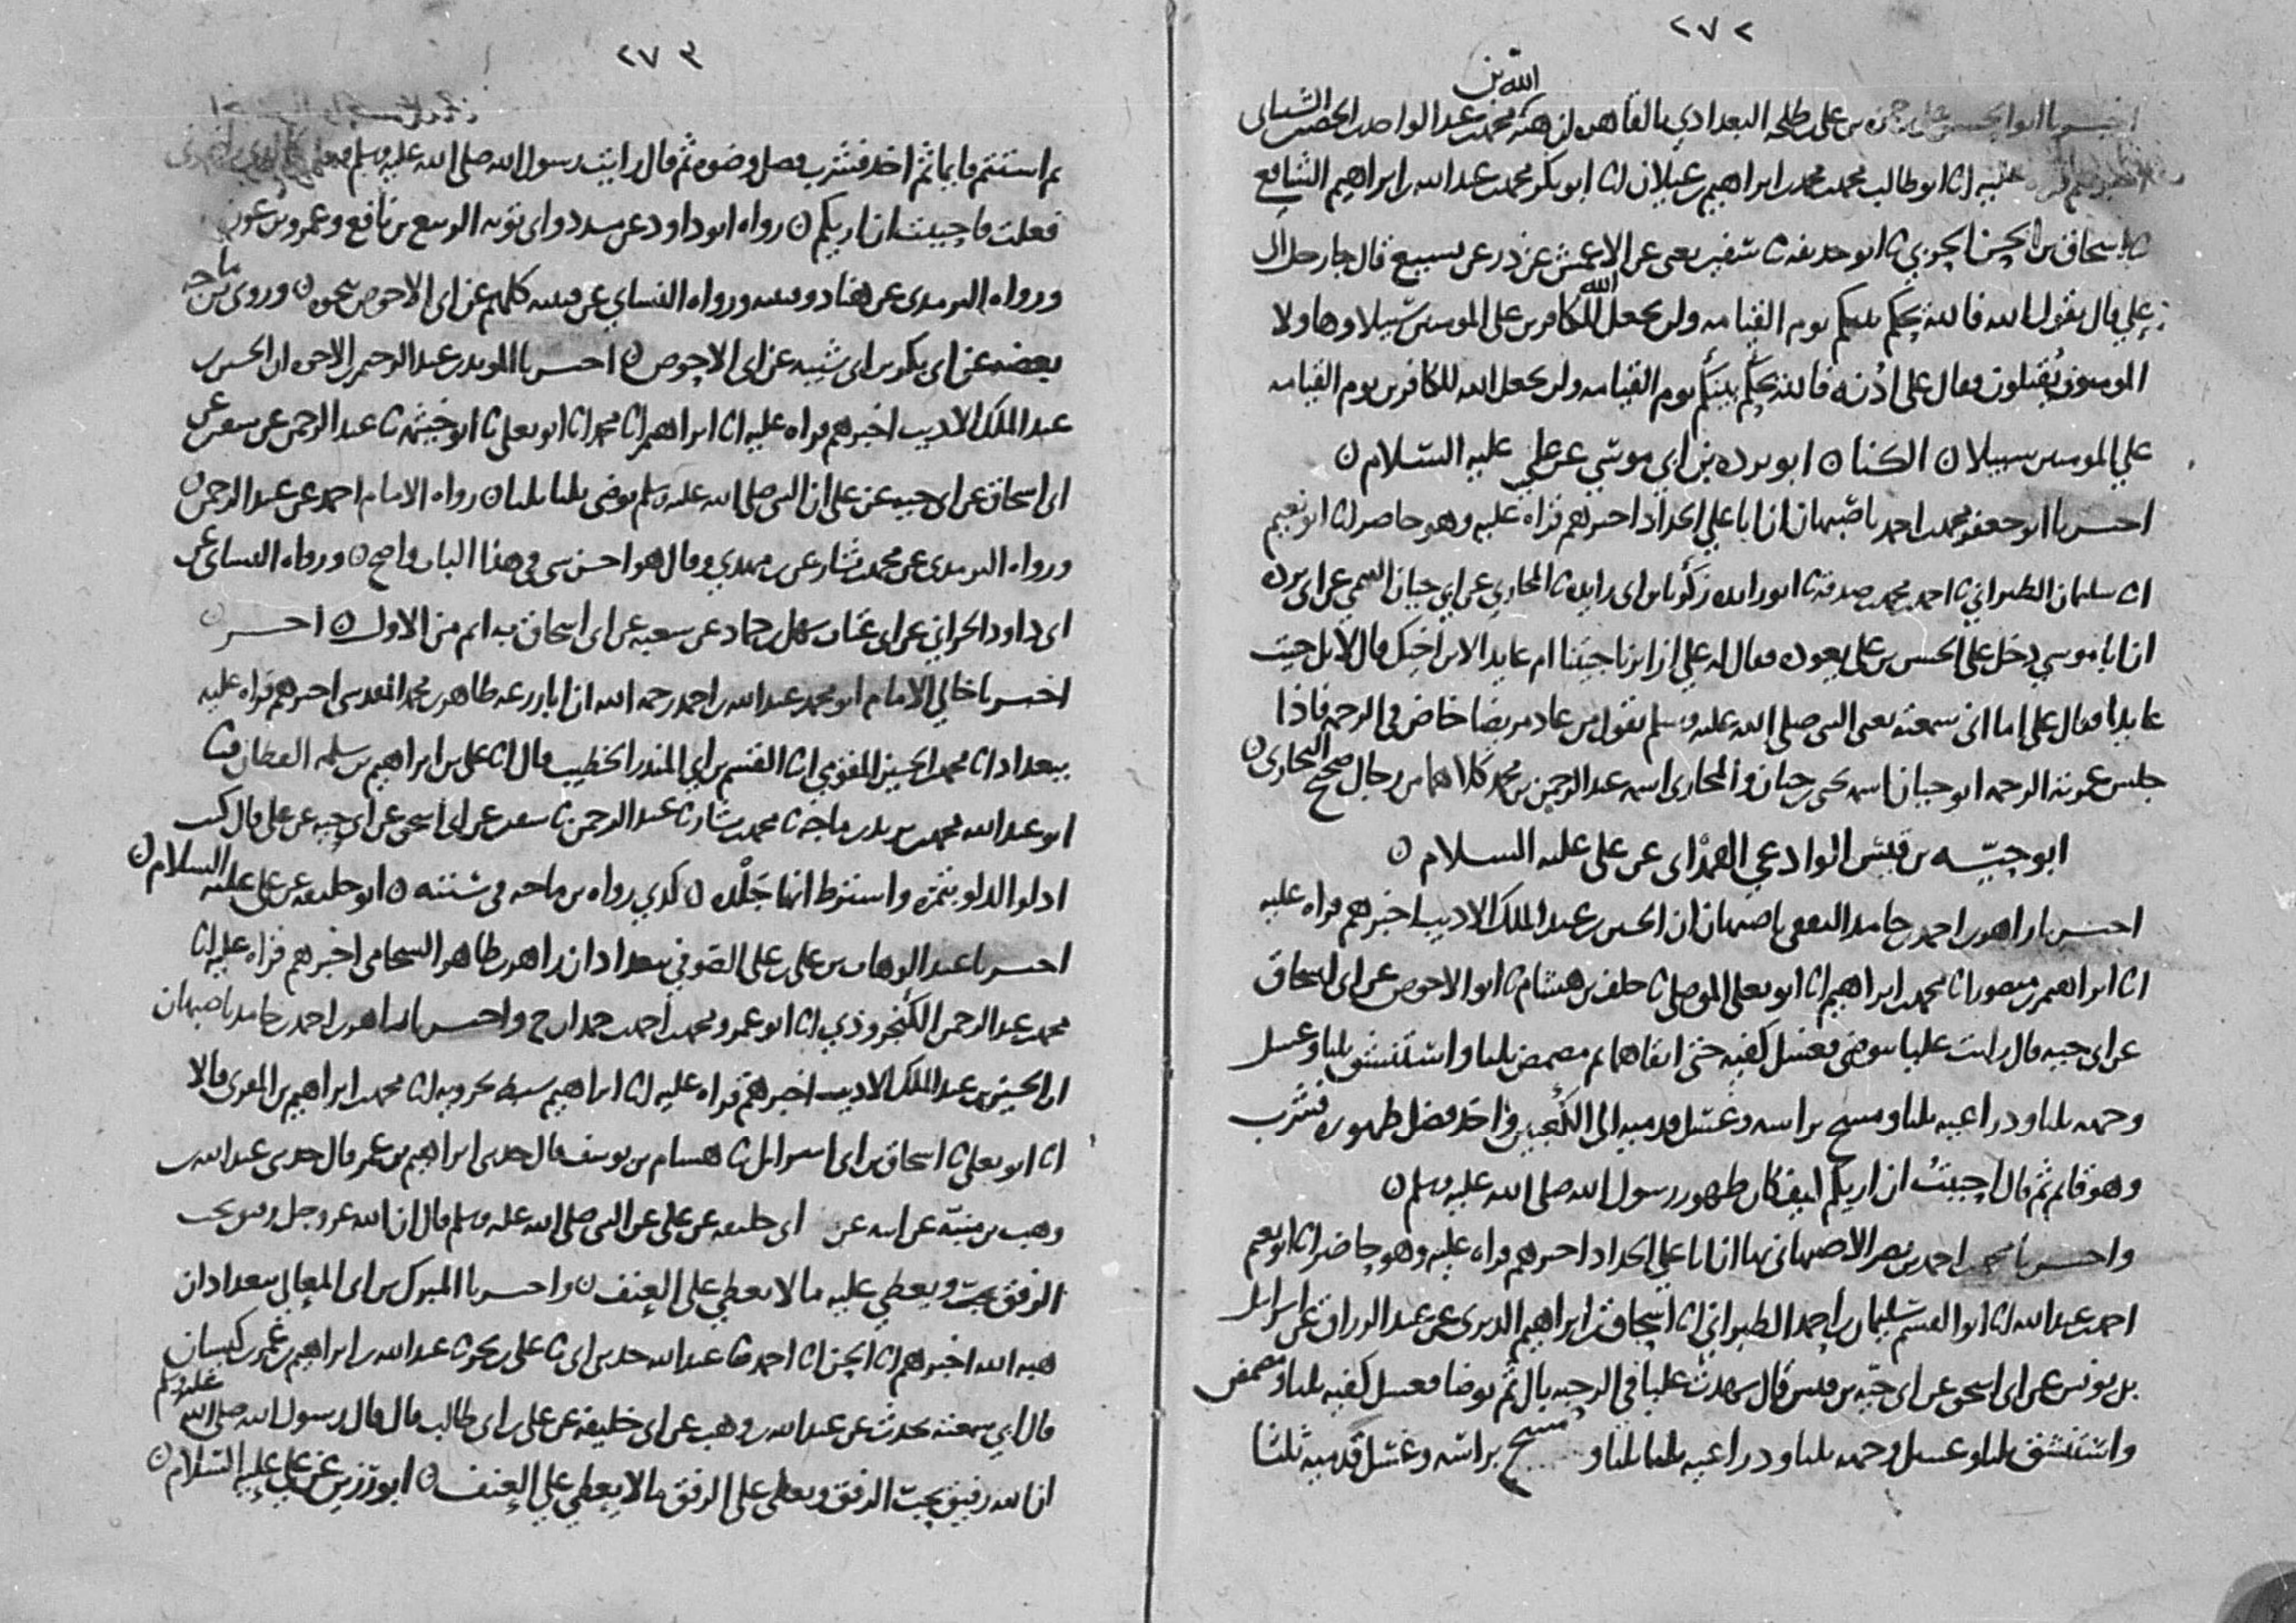 ٢٧٢
الله بن
اخبرنا ابو الحسن علي بن حمزه بن علي بن طلحه البغدادي بالقاهره ان هبة محمد بن عبد الواحد بن الحصين الشيباني
اخبرهم قراه عليه انا ابو طالب محمد بن محمد بن ابراهيم بن غيلان انا ابو بكر محمد بن عبد الله بن ابراهيم الشافعي
ثنا اسحاق بن الحسن الحربي ثنا ابو حذيفه ثنا سفين يعني عن الاعمش عن ذر عن يسيع قال جا رجل الى
علي قال يقول الله فالله يحكم بينكم يوم القيامه ولن يجعل الله للكافرين على المومنين سبيلا وهاولا
المومنون يُقتلون فقال علي اُدْنه فالله يحكم بينكم يوم القيامه ولن يجعل الله للكافرين يوم القيامه
علي المومنين سبيلا ن الكنا ن ابو برده بن ابي موسي عن علي عليه السلام ن
اخبرنا ابو جعفر محمد بن احمد باصبهان ان ابا علي الحداد اخبرهم قراه عليه وهو حاضر انا ابو نعيم
انا سليمان الطبراني ثنا احمد بن محمد بن صدقه ثنا ابو زايده زكريا بن ابي زايده ثنا المحاربي عن ابي حيان التيمي عن ابي برده
ان ابا موسي دخل على الحسن بن علي يعوده فقال له علي ازايرنا جيتنا ام عايدا لابن اخيك قال لا بل جيت
عايدا فقال علي اما اني سمعته يعني النبي صلى الله عليه وسلم يقول من عاد مريضا خاض في الرحمه فاذا
جلس غمرته الرحمه ابو حيان اسمه يحيى بن حيان والمحاربي اسمه عبد الرحمن بن محمد كلاهما من رجال صحيح البخاري ن
ابو حيّه بن قيس الوادعي الهمْداني عن علي عليه السلام ن
اخبرنا زاهر بن احمد بن حامد الثقفي باصبهان ان الحسين بن عبد الملك الاديب اخبرهم قراه عليه
انا ابراهيم بن منصور انا محمد بن ابراهيم انا ابو يعلى الموصلي ثنا خلف بن هشام ثنا ابو الاحوص عن ابي اسحاق
عن ابي حيه قال رايت عليا توضى فغسل كفيه حتى انقاهما ثم مضمض ثلثا واستنشق ثلثا وغسل
وجهه ثلثا وذراعيه ثلثا ومسح براسه وغسل قدميه الى الكعبين واخذ فضل طهوره فشرب
وهو قايم ثم قال احببتُ ان اريكم كيف كان طهور رسول الله صلى الله عليه وسلم ن
واخبرنا محمد بن احمد بن نصر الاصبهاني بها ان ابا علي الحداد اخبرهم قراه عليه وهو حاضر انا ابو نعيم
احمد بن عبد الله انا ابو القسم سليمان بن احمد الطبراني انا اسحاق بن ابراهيم الدبري عن عبد الرزاق عن اسرايل
بن يونس عن ابي اسحق عن ابي حيّه بن قيس قال شهدت عليا في الرحبه بال ثم توضا فغسل كفيه ثلثا ومضمض
واستنشق ثلثا وغسل وجهه ثلثا وذراعيه ثلثا ثلثا و مسح براسه وغسل قدميه ثلثا
٢٧٣
ثم استتم قايما ثم اخذ فشرب فضل وضوه ثم قال رايت رسول الله صلى الله عليه وسلم فعل كالذي رايتموني
فعلت فاحببت ان اريكم ن رواه ابو داود عن مسدد وابي توبه الربيع بن نافع وعمرو بن عون
ورواه الترمذي عن هناد وقتيبه ورواه النساي عن قتيبه كلهم عن ابي الاحوص بنحوه ن وروى بن ماجه
بعضه عن ابي بكر بن ابي شيبه عن ابي الاحوص ن اخبرنا المويد بن عبد الرحيم بن الاخوه ان الحسين بن
عبد الملك الاديب اخبرهم قراه عليه انا ابراهيم انا محمد انا ابو يعلى ثنا ابو خيثمه ثنا عبد الرحمن عن سفين عن
ابي اسحاق عن ابي حيه عن علي ان النبي صلى الله عليه وسلم توضى ثلثا ثلثا ن رواه الامام احمد عن عبد الرحمن ن
ورواه الترمذي عن محمد بن بشار عن بن مهدي وقال هو احسن شي في هذا الباب واصح ن ورواه النساي عن
ابي داود الحراني عن ابي عتاب سهل بن حماد عن شعبه عن ابي اسحاق به اتم من الاول ن اخر ن
اخبرنا خالي الامام ابو محمد عبد الله بن احمد رحمه الله ان ابا زرعه طاهر بن محمد المقدسي اخبرهم قراه عليه
ببغداد انا محمد بن الحسين المقومي انا القسم بن ابي المنذر الخطيب قال انا علي بن ابراهيم بن سلمه القطان قثنا
ابو عبد الله محمد بن يزيد بن ماجه ثنا محمد بن بشار ثنا عبد الرحمن ثنا سفين عن ابي اسحق عن ابي حيه عن علي قال كنت
ادلو الدلو بتمره واشترط انها جَلْده ن كذي رواه بن ماجه في سننه ن ابو خليفه عن علي عليه السلام ن
اخبرنا عبد الوهاب بن علي بن علي الصوفي ببغداد ان زاهر بن طاهر الشحامي اخبرهم قراه عليه انا
محمد بن عبد الرحمن الكنجروذي انا ابو عمرو محمد بن احمد بن حمدان ح واخبرنا زاهر بن احمد بن حامد باصبهان
ان الحسين بن عبد الملك الاديب اخبرهم قراه عليه انا ابراهيم سبط بحرويه انا محمد بن ابراهيم بن المقرى قالا
انا ابو يعلى ثنا اسحاق بن ابي اسرايل ثنا هشام بن يوسف قال حدثني ابراهيم بن عمر قال حدثني عبد الله بن
وهب بن منبّه عن ابيه عن ابي خليفه عن علي عن النبي صلى الله عليه وسلم قال ان الله عز وجل رفيق يحب
الرفق ويعطي عليه ما لا يعطي على العنف ن واخبرنا المبارك بن ابي المعالي ببغداد ان
هبه الله اخبرهم انا الحسن انا احمد ثنا عبد الله حدثني ابي ثنا علي بن بحر ثنا عبد الله بن ابراهيم بن عمر بن كيسان
قال ابي سمعته يحدث عن عبد الله بن وهب عن ابي خليفه عن علي بن ابي طالب قال قال رسول الله صلى الله عليه وسلم
ان الله رفيق يحب الرفق ويعطي على الرفق ما لا يعطي علي العنف ن ابو رزين عن علي عليه السلام ن